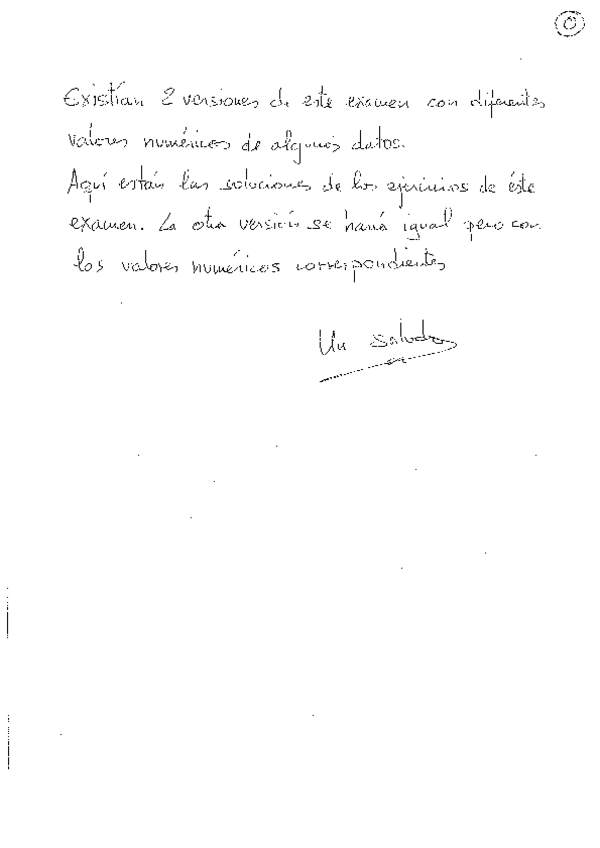 0
Existían 2 versiones de este examen con diferentes
valores numéricos de algunos datos.
Aquí están las soluciones de los ejercicios de éste
examen. La otra versión se hará igual pero con
los valores numéricos correspondientes
Un saludo